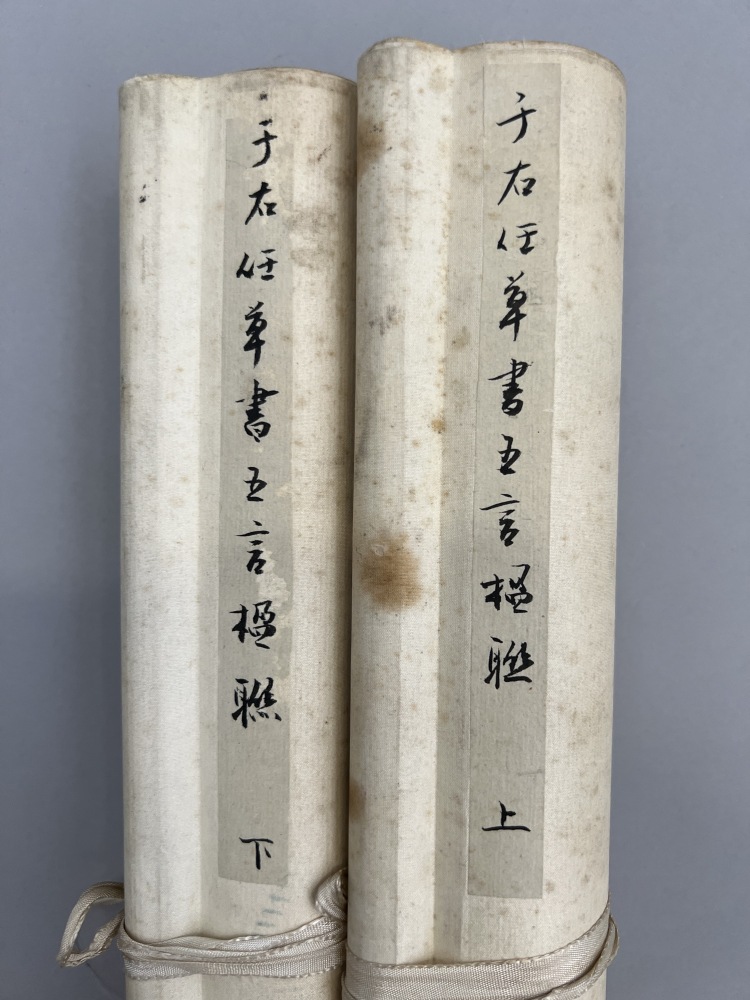 于右任草書五言楹聯 上
于右任草書五言楹聯 下